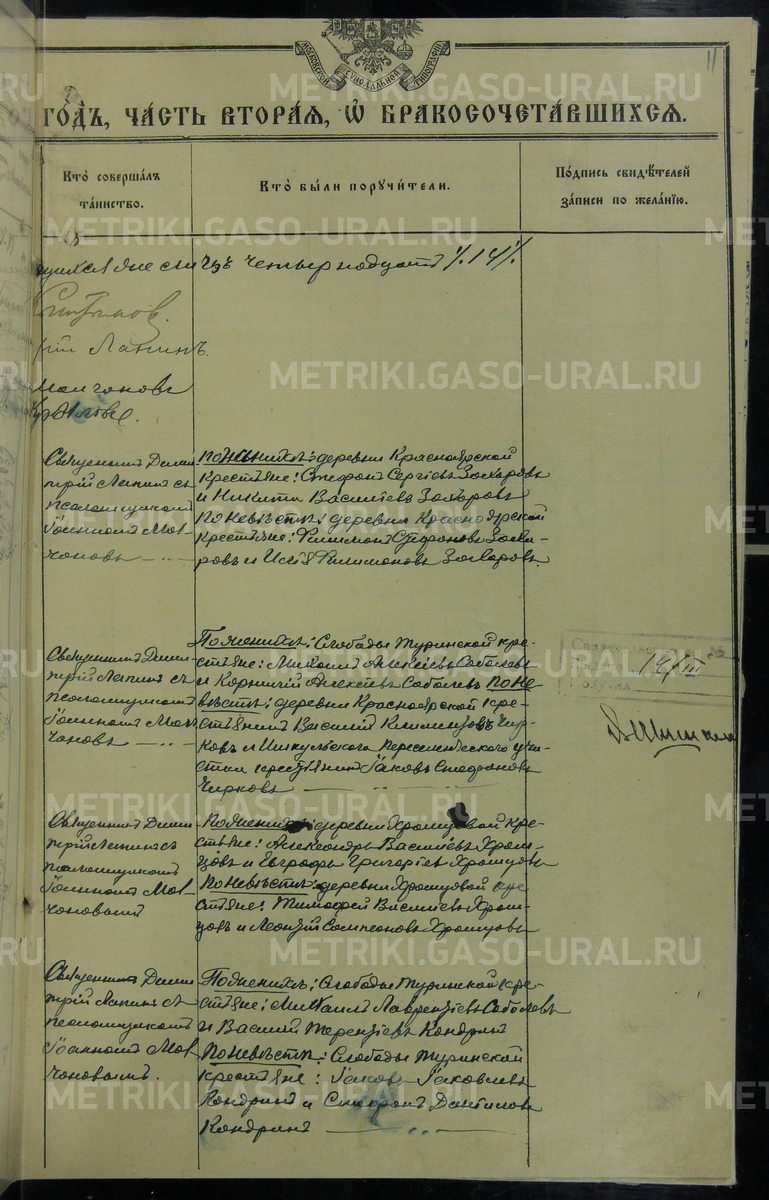 11
МОСКОВСКОЙ СѴНОДАЛЬНОЙ ТИПОГРАФІИ
го́дъ, ча́сть втора́я, ѡ бракосочета́вшихся.
Кто̀ соверша́лъ та́инство.
Кто̀ бы́ли поручи́тели.
По́дпись свидѣ́телей за́писи по жела́нїю.
четырнадцать /.14/.
рій Лапинъ.
Священникъ Дими-
трій Лапинъ съ
псаломщикомъ
Іоанномъ Мол-
чановъ
По женихѣ: деревни Красноярской
крестьяне: Стефанъ Сергіевъ Захаровъ
и Никита Василіевъ Захаровъ
По невѣстѣ: деревни Красноярской
крестьяне: Филимонъ Стефановъ Заха-
ровъ и Филимоновъ Захаровъ.
Священникъ Дими-
трій Лапинъ съ
псаломщикомъ
Іоанномъ Мол-
чановъ
По женихѣ: Слободы Туринской кре-
стьяне: Михаилъ Алексіевъ Соболевъ
и Корнилій Алексіевъ Соболевъ По не-
вѣстѣ: деревни Красноярской кре-
стьянинъ Василій Климентовъ Чир-
ковъ и переселенческаго уча-
стка крестьянинъ Іаковъ Стефановъ
Чирковъ
14/III
Священникъ Дими-
трій Лапинъ съ
псаломщикомъ
Іоанномъ Мол-
чановымъ
По женихѣ: деревни Храмцовой кре-
стьяне: Александръ Василіевъ Храм-
цовъ и Евграфъ Григоріевъ Храмцовъ
По невѣстѣ: деревни Храмцовой кре-
стьяне: Тимофей Василіевъ Храм-
цовъ и Леонтій Сампсоновъ Храмцовъ
Священникъ Дими-
трій Лапинъ съ
псаломщикомъ
Іоанномъ Мол-
чановымъ.
По женихѣ: Слободы Туринской кре-
стьяне: Михаилъ Лаврентіевъ Соболевъ
и Василій Терентіевъ Кондринъ
По невѣстѣ: Слободы Туринской
крестьяне: Іаковъ Іаковлевъ
Кондринъ и Стефанъ Даніиловъ
Кондринъ
METRIKI.GASO-URAL.RU